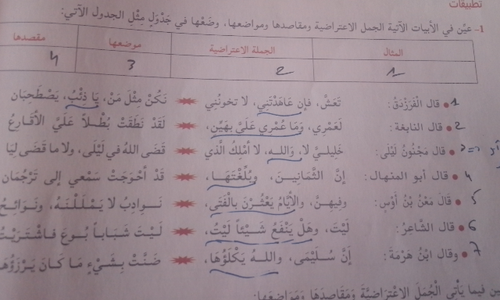 تطبيقات
1- عيّن في الأبيات الآتية الجمل الاعتراضية ومقاصدها ومواضعها، وضَعْها في جَدْوَلٍ مِثْلِ الجدول الآتي:
المثال الجملة الاعتراضية موضعها مقصدها
1 2 3 4
1 قال الفَرَزْدَقُ: تَعَشَّ، فإن عَاهَدْتَنِي، لا تخونُنِي نَكُنْ مِثْلَ مَنْ، يَا ذِئْبُ، يَصْطَحِبَان
2 قال النابغة: لَعَمْرِي، وَمَا عُمْرِي عَلَيَّ بِهَيِّنٍ، لَقَدْ نَطَقَتْ بُطْلاً عَلَيَّ الأقَارِعُ
قال مَجْنُونُ لَيْلَى: خليليَّ لا، والله، لا أمْلِكُ الَّذِي قَضَى اللهُ في لَيْلَى، ولا ما قَضَى لِيَا
4 قال أبو المنهال: إنَّ الثَّمَانِينَ، وبُلِّغْتَهَا، قَدْ أحْوَجَتْ سَمْعِي إلى تَرْجُمَان
5 قال مَعْنُ بْنُ أوْسٍ: وفيهِنَّ، والأيَّامُ يَعْثُرْنَ بِالفَتَى، نَوَادِبُ لا يَمْلَلْنَهُ، ونَوَائِحُ
6 قال الشَّاعِرُ: لَيْتَ، وهَلْ يَنْفَعُ شَيْئاً لَيْتُ، لَيْتَ شَبَاباً بُوعَ فاشْتَرَيْتُ
7 وقال ابْنُ هَرْمَةَ: إنَّ سُلَيْمَى، واللهُ يَكْلَؤُهَا، ضَنَّتْ بِشَيْءٍ مَا كَانَ يَرْزَؤُهَا
فيما يَأتِي الجُمَلَ الاعْتِرَاضِيَّةَ وَمَقَاصِدَهَا وَمَوَاضِعَهَا: